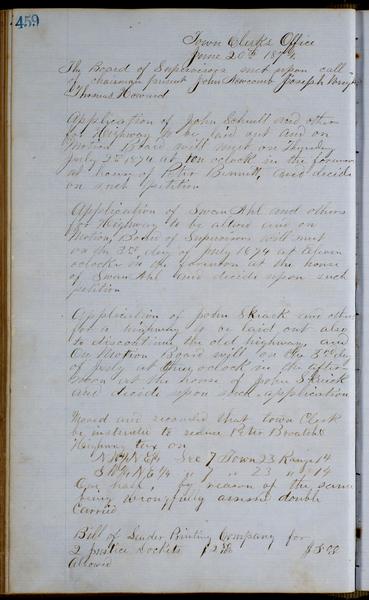 459
Town Clerks Office
June 20th 1874
The Board of Supervisors met upon call
of chairman present John Newcomb Joseph
Thomas Howard
Application of John Schull and others
for Highway to be laid out and on
Motion Board will meet on Thursday
July 2nd 1874 at ten oclock in the forenoon
at house of Peter Bennett, and decide
on such petition
Application of Swan Ahl and others
for Highway to be altered and on
Motion, Board of Supervisors will meet
on the 3rd day of July 1874 at
oclock in the forenoon at the house
of Swan Ahl and decide upon such
petition
Application of John and others
for a highway to be laid out also
to discontinue the old highway, and
On Motion, Board will on the 3rd day
of July at three oclock in the after
noon at the house of John
and decide upon such application
Moved and seconded that town Clerk
be instructed to reduce Peter
Highway tax on
N W ¼ N E ¼ Sec 7 Town 23 Range 14
S W ¼ N E ¼ " 7 " 23 " " 14
One half, by reason of the same
being wrongfully assessed double
Carried
Bill of Leader Printing Company for
2 Justice Dockets
Allowed